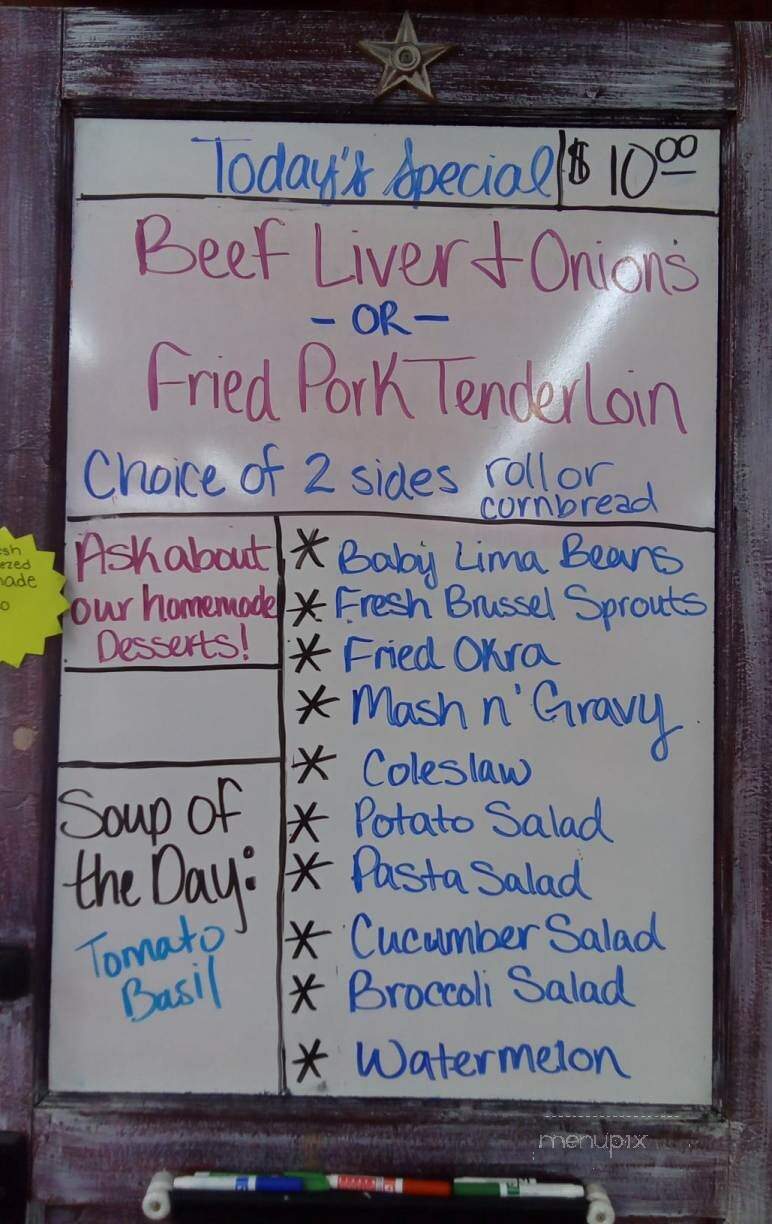 Today's Special $10.00
Beef Liver & Onions
- OR -
Fried Pork Tenderloin
Choice of 2 sides roll or
cornbread
Ask about
our homemade
Desserts!
* Baby Lima Beans
* Fresh Brussel Sprouts
* Fried Okra
* Mash n' Gravy
* Coleslaw
* Potato Salad
* Pasta Salad
* Cucumber Salad
* Broccoli Salad
* Watermelon
Soup of
the Day:
Tomato
Basil
menupix